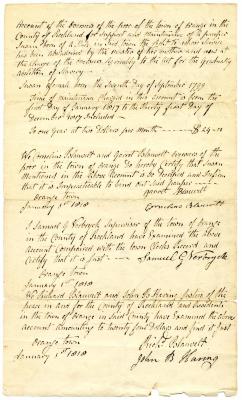 Account of the overseers of the poor of the town of Orange in the
County of Rockland for Support and Maintenance of a pauper
Susan Born of a Slave in Said town the right to whose Service
has been abandoned by the master of her mother and now at
the charge of the
abolition of Slavery
Susan female born the Seventh Day of September 1799
Time of maintenance charged in this account is from the
first Day of January 1807 to the thirty first Day of
December 1807 Included
to one year at two Dollars per Month $24=00
We Cornelius Blauvelt and Garret Blauvelt overseers of the
poor in the town of orange Do hereby Certify that Susan
Mentioned in the above Account is
that it is Impracticable to bind out Said pauper
Orange town Garret Blauvelt
January 1st 1808 Cornelius Blauvelt
I Samuel G Verbryck Supervisor of the town of orange
in the County of Rockland have Examined the above
account Compared with the town Clerks Record and
Certify that it is Just Samuel G Verbryck
Orange Town
January 1st 1808
We Richard Blauvelt and John B Haring Justices of the
peace in and for the County of Rockland and Residents
in the town of Orange in Said County have Examined the above
account Amounting to twenty four Dollars and find it Just
Orange town Richd Blauvelt
January 1st 1808 John B Haring